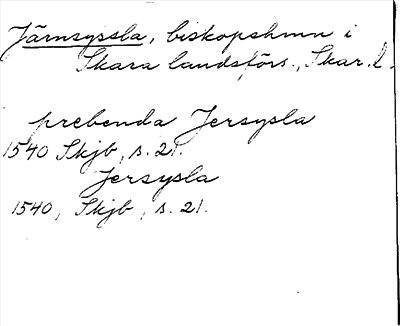 Järnsyssla, biskopshmn i
Skara landsförs., Skar. l.
prebenda Jersysla
1540 Skjb, s. 21.
Jersysla
1540, Skjb, s. 21.